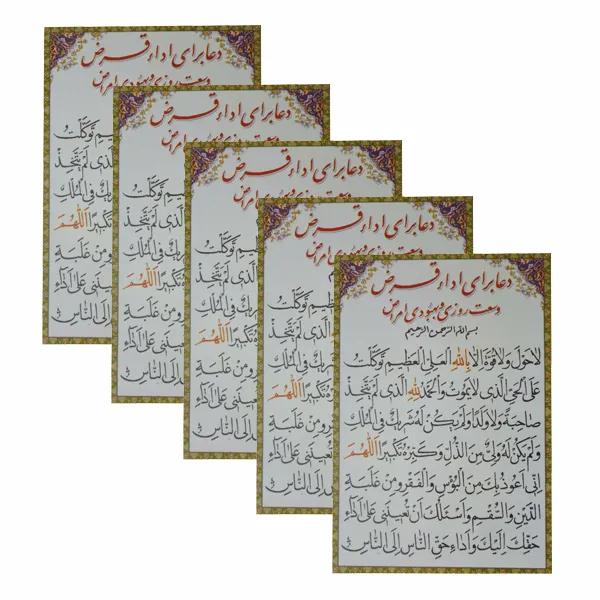 دعا برای اداء قرض
وسعت روزی و بهبودی امراض
بسم الله الرحمن الرحیم
لاحَوْلَ وَلاقُوَّةَ اِلاّ بِاللهِ الْعَلِیِّ الْعَظیمِ تَوَکَّلْتُ
عَلَی الْحَیِّ الَّذی لایَمُوتُ وَالْحَمْدُ لِلّهِ الَّذی لَمْ یَتَّخِذْ
صاحِبَةً وَلاوَلَدًا وَلَمْ یَکُنْ لَهُ شَریکٌ فِی الْمُلْکِ
وَلَمْ یَکُنْ لَهُ وَلِیٌّ مِنَ الذُّلِّ وَکَبِّرْهُ تَکْبیرًا اَللّهُمَّ
اِنّی اَعُوذُ بِکَ مِنَ الْبُؤْسِ وَالْفَقْرِ وَمِنْ غَلَبَةِ
الدَّیْنِ وَالسُّقْمِ وَاَسْئَلُکَ اَنْ تُعینَنی عَلی اَداءِ
حَقِّکَ اِلَیْکَ وَاَداءِ حَقِّ النّاسِ اِلَی النّاسِ